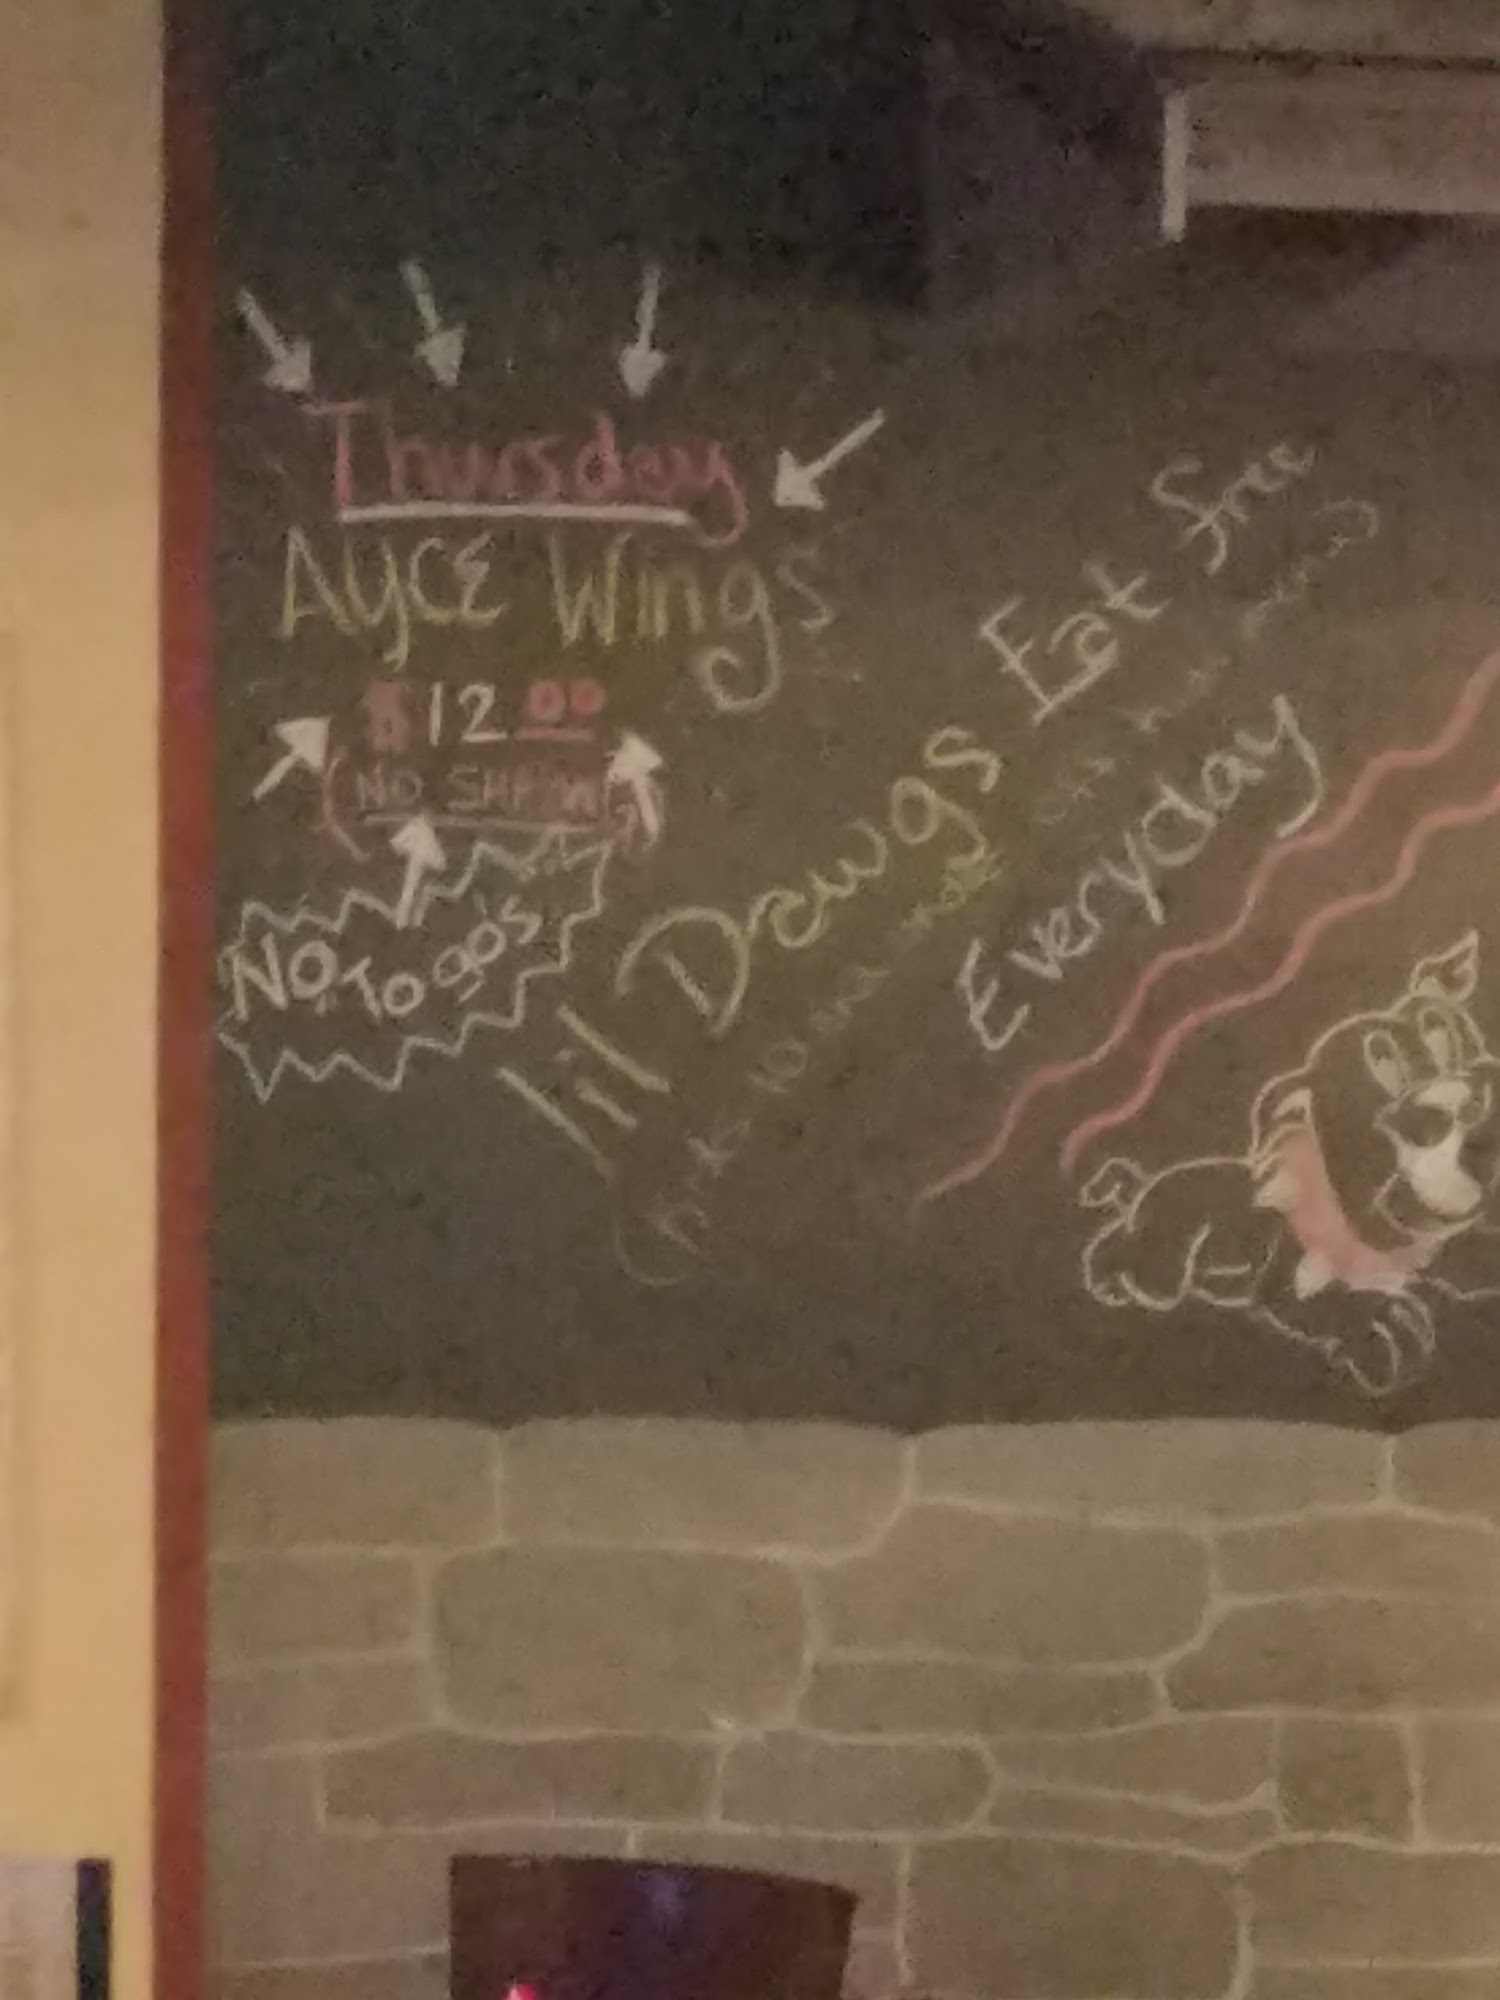 Thursday
AYCE Wings
$12.00
(NO SHARIN
NO To go's
lil Dawgs Eat free
Everyday